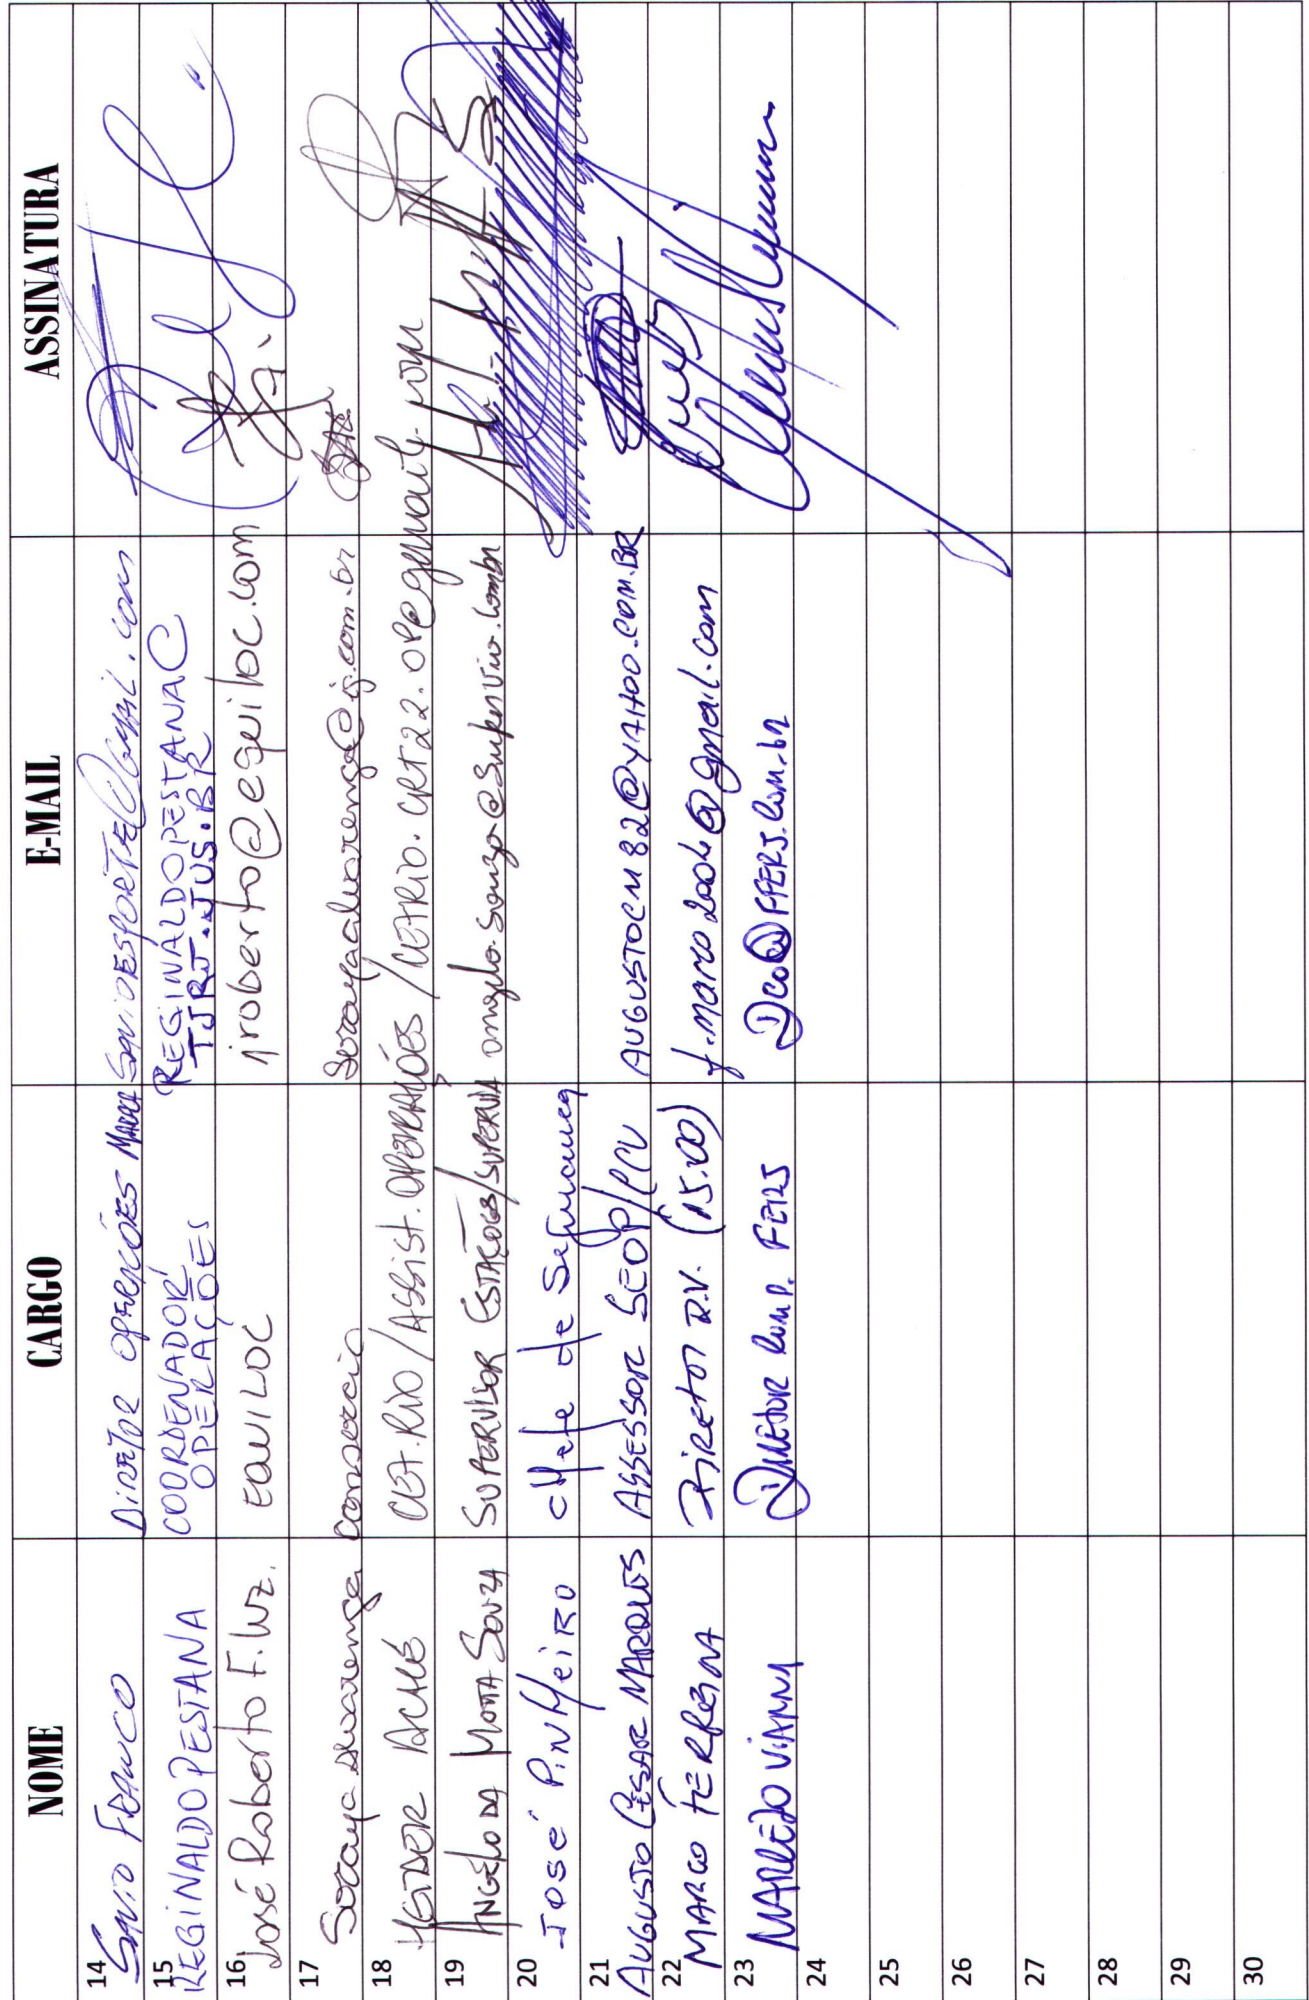 NOME CARGO E-MAIL ASSINATURA
14 SAVIO FRANCO DIRETOR OPERAÇÕES
15 REGINALDO PESTANA COORDENADOR REGINALDOPESTANA@
OPERAÇÕES TJRJ.JUS.BR
16 José Roberto F. Luz. EQUILOC jroberto@equiloc.com
17 Soraya Alvarenga Consorcio sorayaalvarenga@ig.com.br
18 HEIDER ACHÉ CET.RIO/ASSIST.OPERAÇÕES / CETRIO.GRT22.OP@gmail.com
19 ANGELO DA MOTTA SOUZA SUPERVISOR ESTAÇÕES/SUPERVIA angelo.souza@supervia.com.br
20 JOSÉ PINHEIRO chefe de Segurança
21 AUGUSTO CÉSAR MARQUES ASSESSOR SEOP/ AUGUSTOCM82@YAHOO.COM.BR
22 MARCO DIRETOR D.V. (15:00) f.marco2004@gmail.com
23 MARCELO VIANNA DIRETOR COMP. FERJ DCO@FFERJ.com.br
24
25
26
27
28
29
30